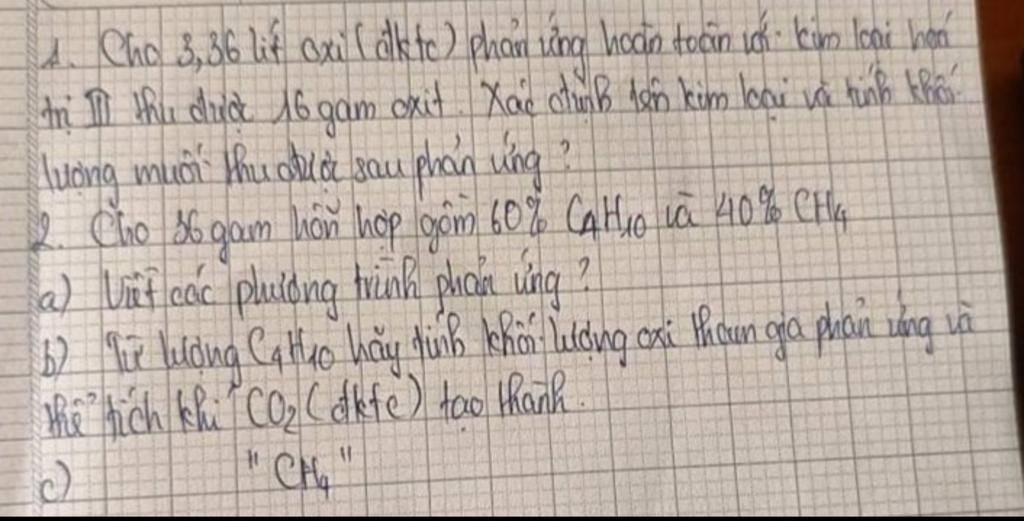 1. Cho 3,36 lít oxi (đktc) phản ứng hoàn toàn với kim loại hoá
trị III thu được 16 gam oxit. Xác định tên kim loại và tính khối
lượng muối thu được sau phản ứng?
2. Cho 36 gam hỗn hợp gồm 60% C4H10 và 40% CH4
a) Viết các phương trình phản ứng?
b) Từ lượng C4H10 hãy tính khối lượng oxi tham gia phản ứng và
thể tích khí CO2 (đktc) tạo thành.
c) " CH4 "